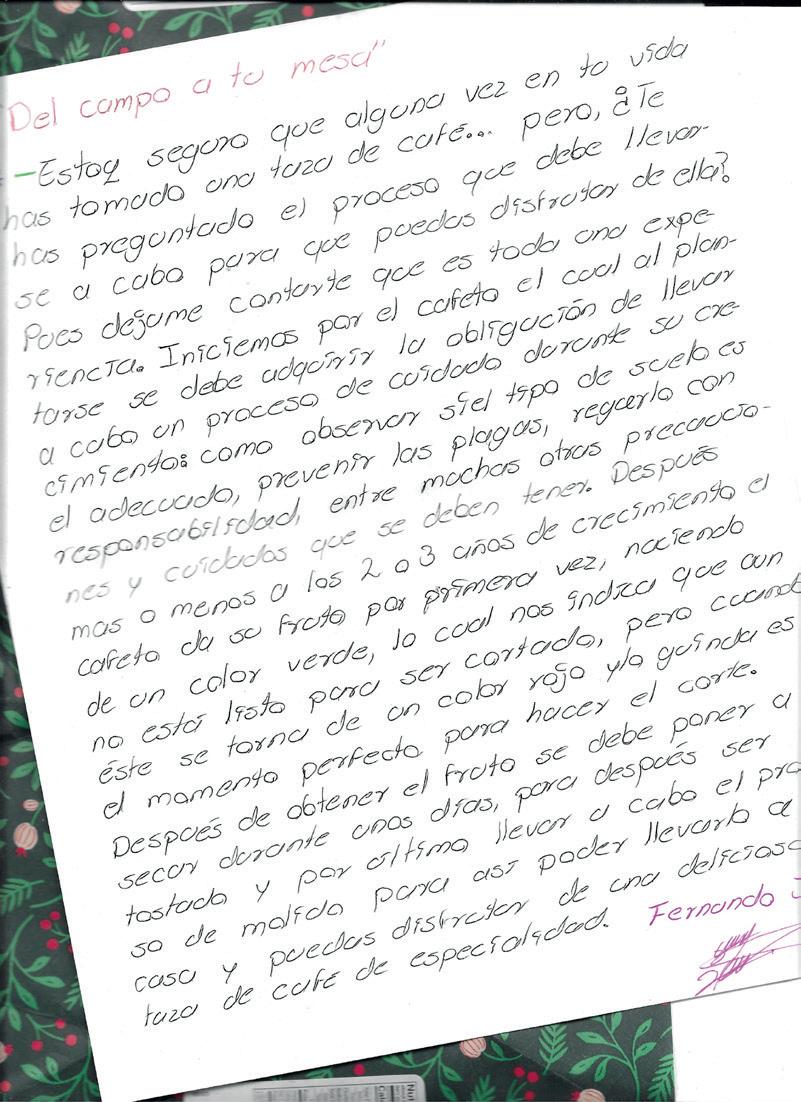 Del campo a tu mesa"
-Estoy seguro que alguna vez en tu vida
has tomado una taza de café... pero, ¿Te
has preguntado el proceso que debe llevar-
se a cabo para que puedas disfrutar de ella?
Pues déjame contarte que es toda una expe-
riencia. Iniciemos por el cafeto el cual al plan-
tarse se debe adquirir la obligación de llevar
a cabo un proceso de cuidado durante su cre-
cimiento: como observar si el tipo de suelo es
el adecuado, prevenir las plagas, regarlo con
responsabilidad, entre muchas otras precaucio-
nes y cuidados que se deben tener. Después
mas o menos a los 2 o 3 años de crecimiento el
cafeto da su fruto por primera vez, naciendo
de un color verde, lo cual nos indica que aun
no está listo para ser cortado, pero cuando
éste se torna de un color rojo y/o guinda es
el momento perfecto para hacer el corte.
Después de obtener el fruto se debe poner a
secar durante unos días, para después ser
tostado y por último llevar a cabo el pro
so de molido para así poder llevarlo a
casa y puedas disfrutar de una deliciosa
taza de café de especialidad. Fernando J